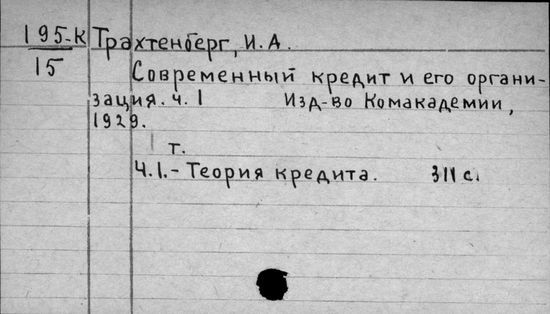 195-К Трахтенберг, И.А.
15
Современный кредит и его органи-
зация. ч. 1 Изд-во Комакадемии,
1929.
т.
Ч.1. - Теория кредита. 311 с.